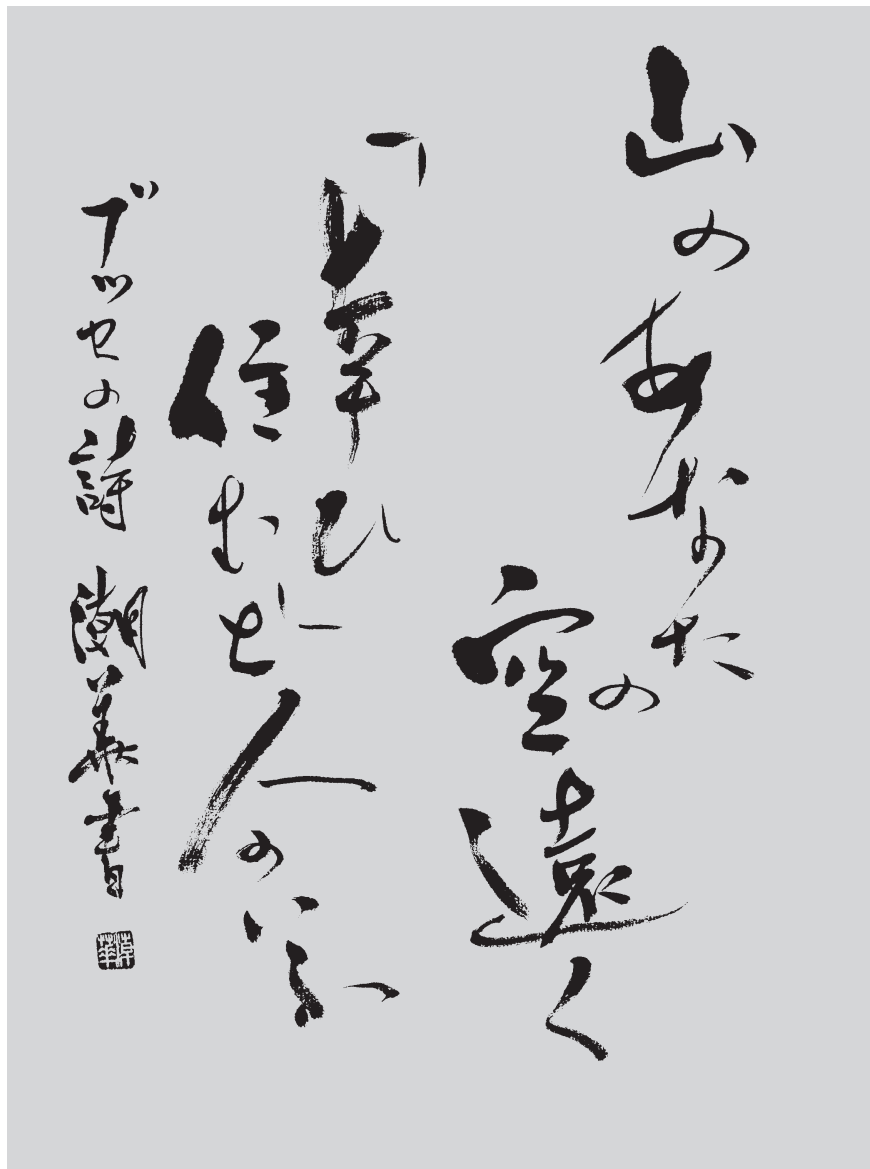 山のあなたの
空遠く
「幸ひ」
住むと人のいふ
ブッセの詩 潮華書